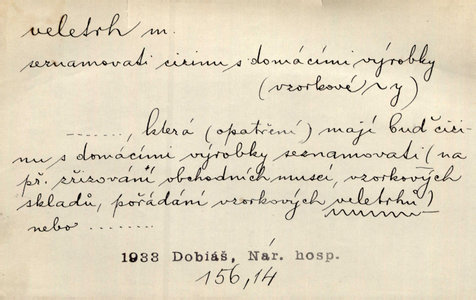 veletrh m.
seznamovati cizinu s domácími výrobky
(vzorkové ~y)
........, která (opatření) mají buď cizi-
nu s domácími výrobky seznámovati (na
př. zřizování obchodních museí, vzorkových
skladů, pořádání vzorkových veletrhů)
nebo ........
1933 Dobiáš, Nár. hosp.
156,14